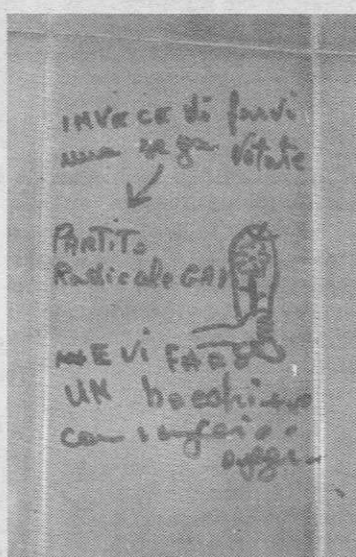 INVECE di farvi
una sega Votate
PARTITO
Radicale GAY
E Vi FARÒ
UN bocchino
con